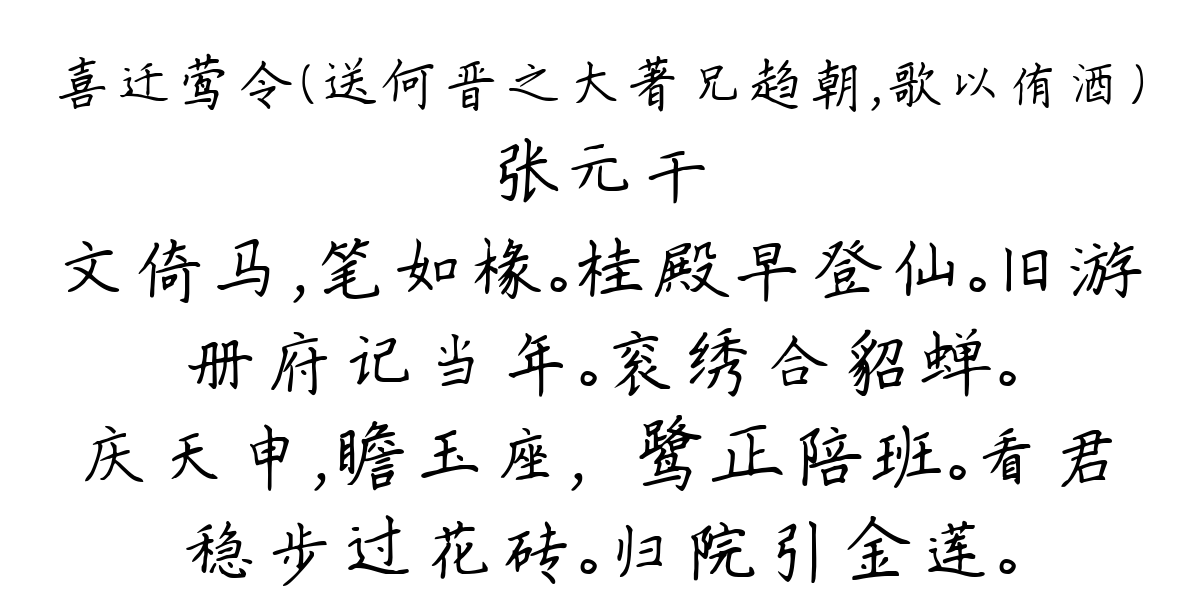 喜迁莺令(送何晋之大著兄趋朝,歌以侑酒)
张元干
文倚马,笔如椽。桂殿早登仙。旧游
册府记当年。衮绣合貂蝉。
庆天申,瞻玉座，鹭正陪班。看君
稳步过花砖。归院引金莲。